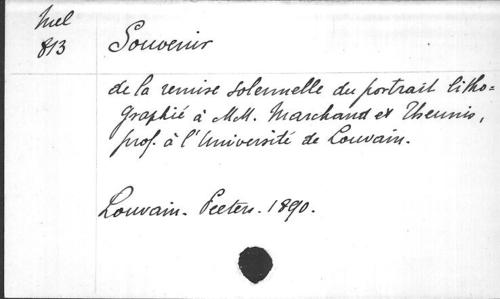 Mel
813
Souvenir
de la remise solennelle du portrait litho=
graphié à MM. Marchand et Theunis,
prof. à l'Université de Louvain.
Louvain. Peeters. 1890.